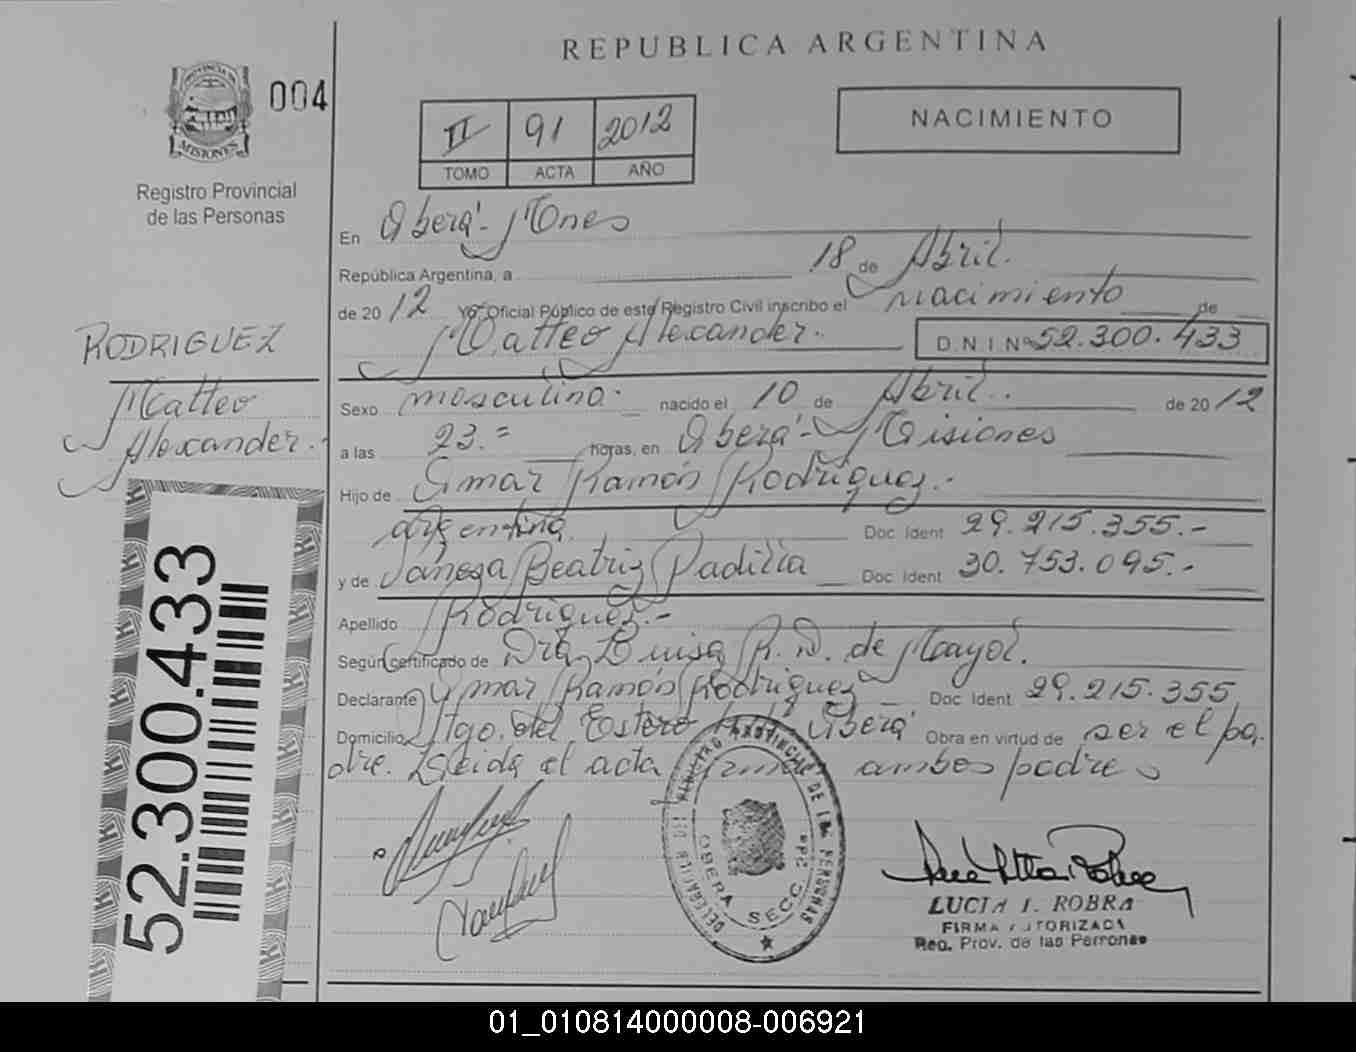 REPUBLICA ARGENTINA
PROVINCIA DE
MISIONES
004
Registro Provincial
de las Personas
II 91 2012
TOMO ACTA AÑO
NACIMIENTO
En Oberá - Mnes
República Argentina, a 18 de Abril.
de 2012 Yo Oficial Público de este Registro Civil inscribo el nacimiento de
Matteo Alexander. D.N.I. Nº 52.300.433
RODRIGUEZ
Matteo
Alexander.
Sexo masculino. nacido el 10 de Abril. de 2012
a las 23.= horas, en Oberá - Misiones
Hijo de Omar Ramón Rodriguez.-
argentina. Doc Ident 29.215.355.-
y de Vanesa Beatriz Padilla Doc Ident 30.753.095.-
Apellido Rodriguez.-
Según certificado de Dra Luisa R. D. de Mayol.
Declarante Omar Ramón Rodriguez Doc Ident 29.215.355
Domicilio Stgo. del Estero Oberá Obra en virtud de ser el pa.
dre. Leida el acta firman ambos padres
52.300.433
DELEGACIÓN DEL REGISTRO PROVINCIAL DE LAS PERSONAS
OBERA SECC. 2da
LUCIA I. ROBRA
FIRMA AUTORIZADA
Reg. Prov. de las Personas
01_010814000008-006921